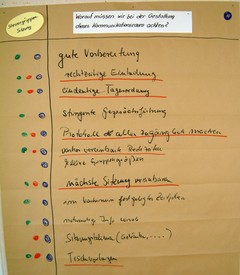 Steuergruppen
Sitzung
Worauf müssen wir bei der Gestaltung
dieses Kommunikationsraums achten?
gute Vorbereitung
rechtzeitige Einladung
eindeutige Tagesordnung
stringente Gesprächsführung
Protokoll allen zugänglich machen
vorher vereinbarte Redezeiten
kleine Gruppengrößen
nächste Sitzung vereinbaren
Sitzungsklima (Getränke, ....)
Tischvorlagen